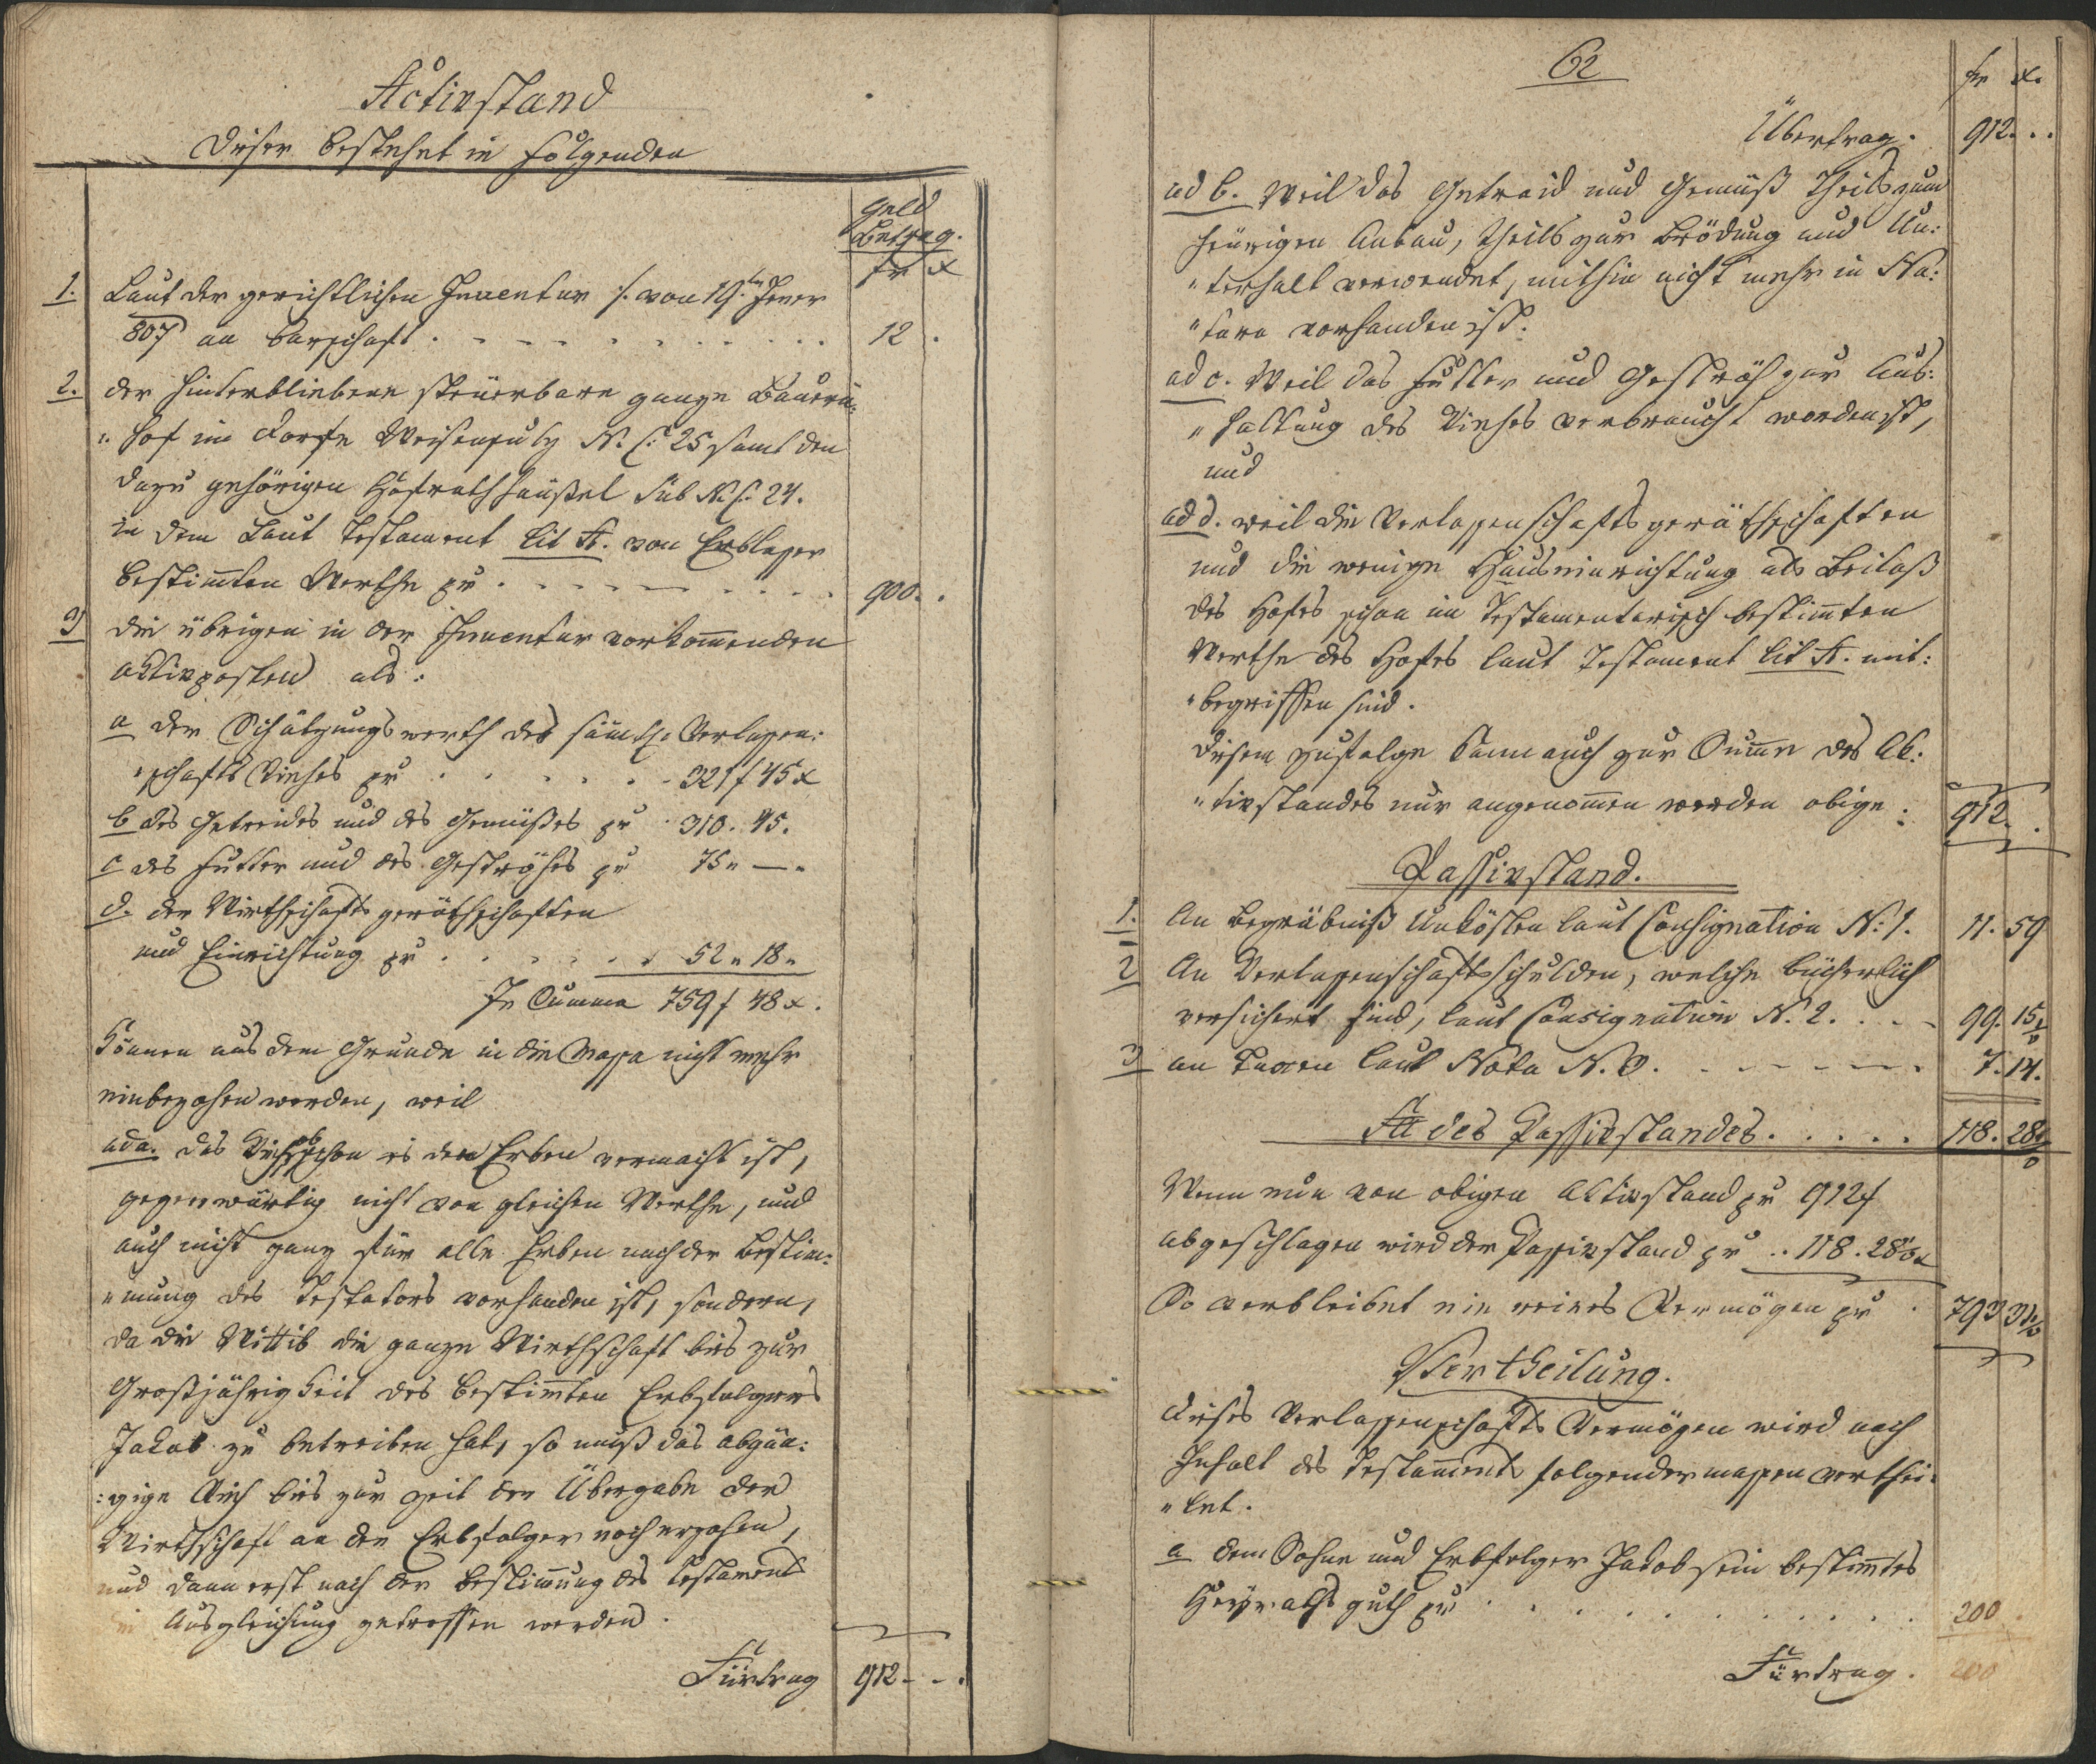 Activstand
Dieser bestehet in folgenden
Geld
Betrag.
fr x
1. Laut der gerichtlichen Inventur /. von 19.ten Jener
807 an Barschaft . . . . . . . . . . 12 .
2. der hinterbliebene steuerbare ganze Bauern-
"hof im Dorfe N. C. 25 samt den
dazu gehörigen Hofrathhäußel sub N. C. 24.
in dem Laut Testament Lit A. von Erblaßer
bestimten Werthe pr . . . . . . . . 900. .
3) die übrigen in der Inventur vorkomenden
aktivposten als:
a der Schätzungswerth des sämtl. Verlaßen:
"schafts Viehes pr . . . . . . 321 f 45 x
b des Getreides und des Gemüßes pr . 310. 45.
c des Futter und des Geströhes pr 75 " — "
d. der Wirthschafts geräthschaften
und Einrichtung pr . . . . . . 52 " 18 "
In Summa 759 f 48 x.
Können aus dem Grunde in die Massa nicht mehr
einbezohen werden, weil
ad a. das Vieh obschon es den Erben vermacht ist,
gegenwärtig nicht von gleichen Werthe, und
auch nicht ganz für alle Erben nach der Bestim:
"mung des Testators vorhanden ist, sondern,
da die Wittib die ganze Wirthschaft bis zur
Großjährigkeit des bestimten Erbsfolgers
Jakob zu betreiben hat, so muß das abgän:
:gige Vieh bis zur Zeit der Übergabe der
Wirthschaft an den Erbsfolger nach erzohen,
und dann erst nach der Bestimung des Testaments
die Ausgleichung getroffen werden.
Fürtrag 912 - - .
62
fr x.
Übertrag. 912. . .
ad b. Weil das Getraid und Gemüß Theils zum
heurigen Anbau, theils zur Brödung und Un:
"terhalt verwendet, mithin nicht mehr in Na:
"tura vorhanden ist.
ad c. Weil das Futter und Geströh zur Aus:
"haltung des Viehes verbraucht worden ist,
und
ad d. weil die Verlaßenschafts geräthschaften
und die wenige Hauseinrichtung als Beilaß
des Hofes schon im Testamentarisch bestimten
Werthe des Hofes laut Testament Lit A. mit:
"begriffen sind.
Diesem zufolge kann auch zur Sume des Ak:
"tivstandes nur angenomen werden obige : 912. .
Passivstand.
1. An Begräbniß Unkösten laut Consignation N: 1. 11. 59
2 An Verlaßenschaftsschulden, welche bücherlich
versichert sind, laut Consignation N. 2. . . - 99. 15
3 an Taxen laut Nota N. 3. - . - . - - . 7. 14.
des Passivstandes. . . . . . 118. 28
Wenn nun von obigen Aktivstand pr 912 f
abgeschlagen wird der Passivstand pr . . 118. 28
So verbleibet ein reines Vermögen pr . 793 31
Vertheilung.
Dieses Verlassenschafts Vermögen wird nach
Inhalt des Testaments folgendermaßen verthei:
"let.
a dem Sohne und Erbfolger Jakob sein bestimtes
Heyrathsguth pr . . . . . . . . . 200 .
Fürtrag. 200